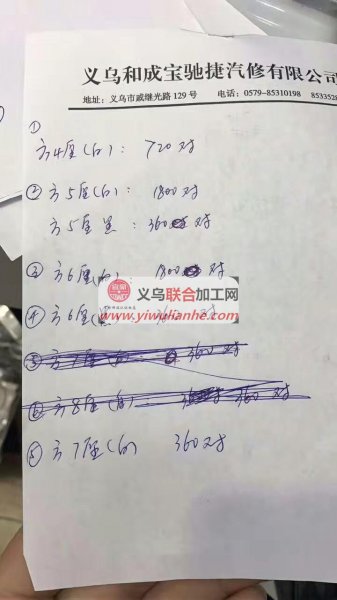 义乌和成宝驰捷汽修有限公司
地址：义乌市戚继光路129号 电话：0579-85310198 8533528
①
方4厘(白)： 720对
②方5厘(白)： 1800对
方5厘黑： 360对
③方6厘 1800对
义乌联合加工网
www.yiwulianhe.com
④方6厘
⑤方7厘(白) 360对
⑥方8厘(白) 360对
⑤方7厘(白) 360对